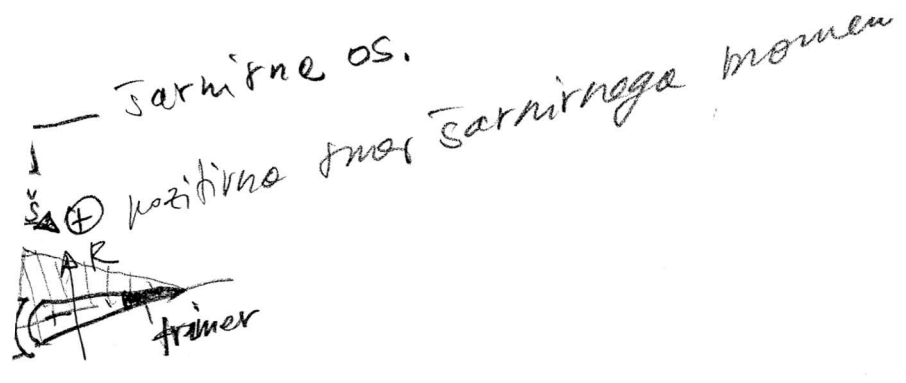 šarnirna os.
š ⊕ pozitivna smer šarnirnega momen
R
trimer